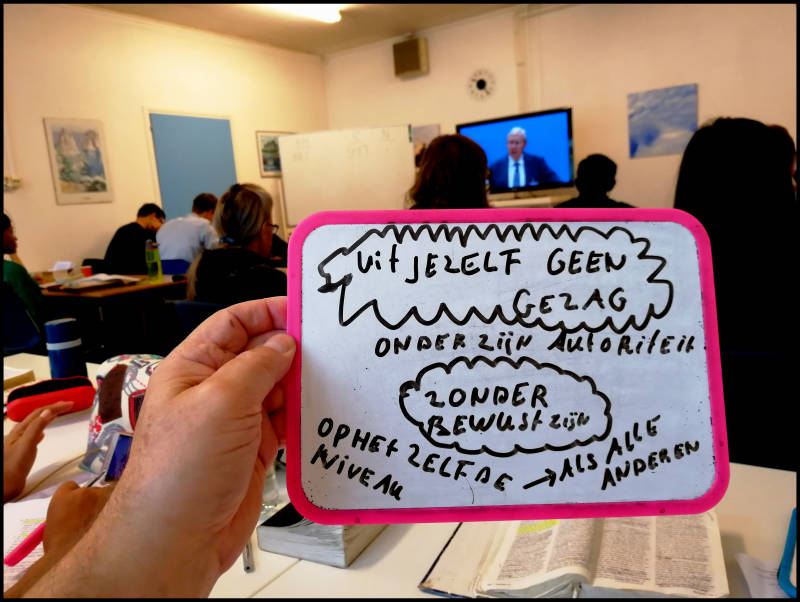 Uit JEZELF GEEN
GEZAG
ONDER ZIJN AUTORITEIT
ZONDER
BEWUSTZIJN
OP HET ZELFDE → ALS ALLE
NIVEAU
ANDEREN